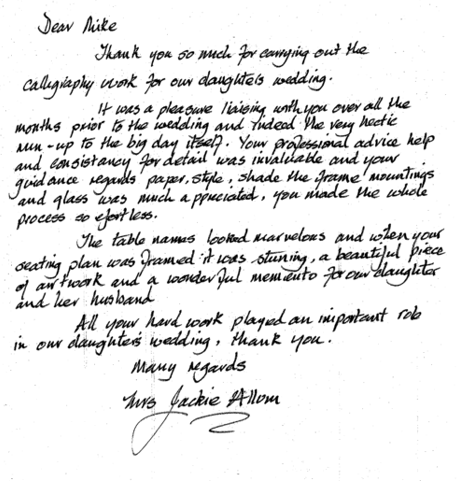 Dear Mike
Thank you so much for carrying out the
calligraphy work for our daughter's wedding.
It was a pleasure liaising with you over all the
months prior to the wedding and indeed the very hectic
run-up to the big day itself. Your professional advice help
and consistancy for detail was invaluable and your
guidance regards paper, style, shade the frame mountings
and glass was much appreciated, you made the whole
process so efortless.
The table names looked marvelous and when your
seating plan was framed it was stuning, a beautiful piece
of artwork and a wonderful memento for our daughter
and her husband
All your hard work played an important role
in our daughter's wedding, thank you.
Many regards
Mrs Jackie Allom